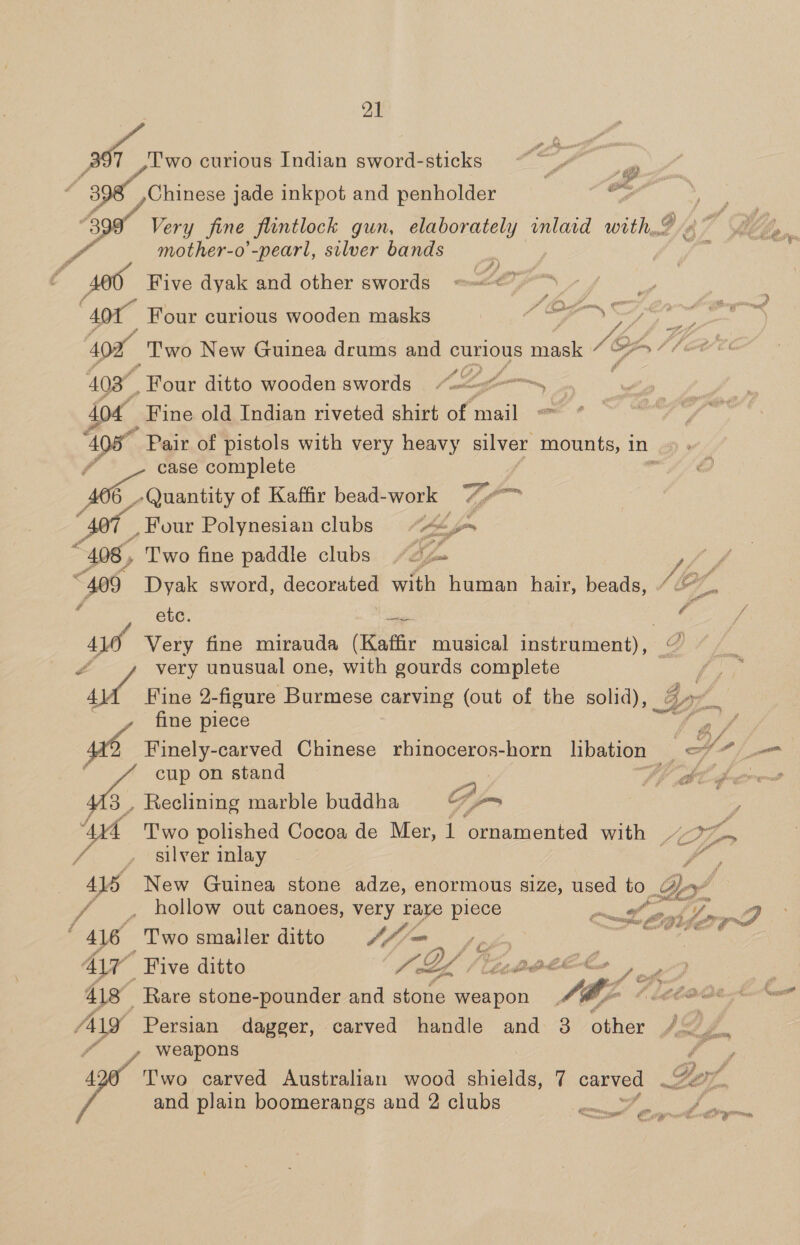 21
397 Two curious Indian sword-sticks
398 Chinese jade inkpot and penholder
399 Very fine flintlock gun, elaborately inlaid with
mother-o'-pearl, silver bands
400 Five dyak and other swords
401 Four curious wooden masks
402 Two New Guinea drums and curious mask
403 Four ditto wooden swords
404 Fine old Indian riveted shirt of mail
405 Pair of pistols with very heavy silver mounts, in
case complete
406 Quantity of Kaffir bead-work
407 Four Polynesian clubs
408 Two fine paddle clubs
409 Dyak sword, decorated with human hair, beads,
etc.
410 Very fine mirauda (Kaffir musical instrument),
very unusual one, with gourds complete
411 Fine 2-figure Burmese carving (out of the solid),
fine piece
412 Finely-carved Chinese rhinoceros-horn libation
cup on stand
413 Reclining marble buddha
414 Two polished Cocoa de Mer, 1 ornamented with
silver inlay
415 New Guinea stone adze, enormous size, used to
hollow out canoes, very rare piece
416 Two smaller ditto
417 Five ditto
418 Rare stone-pounder and stone weapon
419 Persian dagger, carved handle and 3 other
weapons
420 Two carved Australian wood shields, 7 carved
and plain boomerangs and 2 clubs